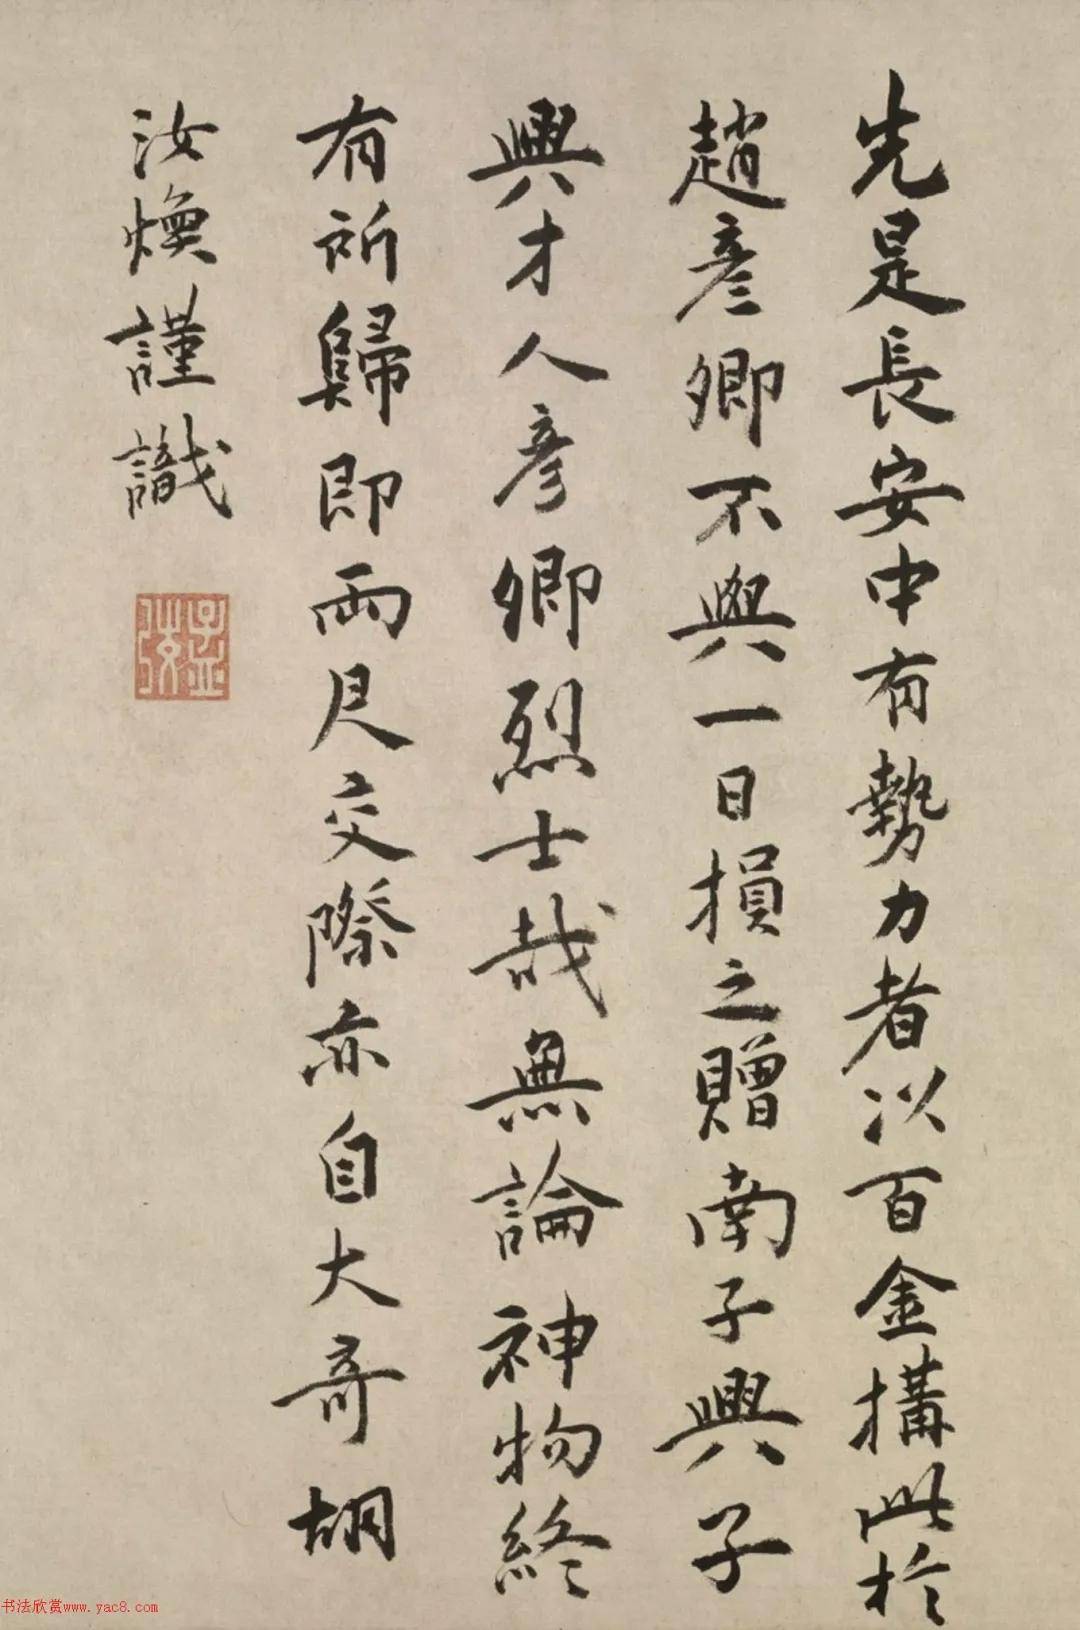 先是長安中有勢力者以百金搆此於
趙彥卿不與一日損之贈南子興子
興才人彥卿烈士哉無論神物終
有所歸即兩尺交際亦自大哥胡
汝煥謹識
书法欣赏www.yac8.com